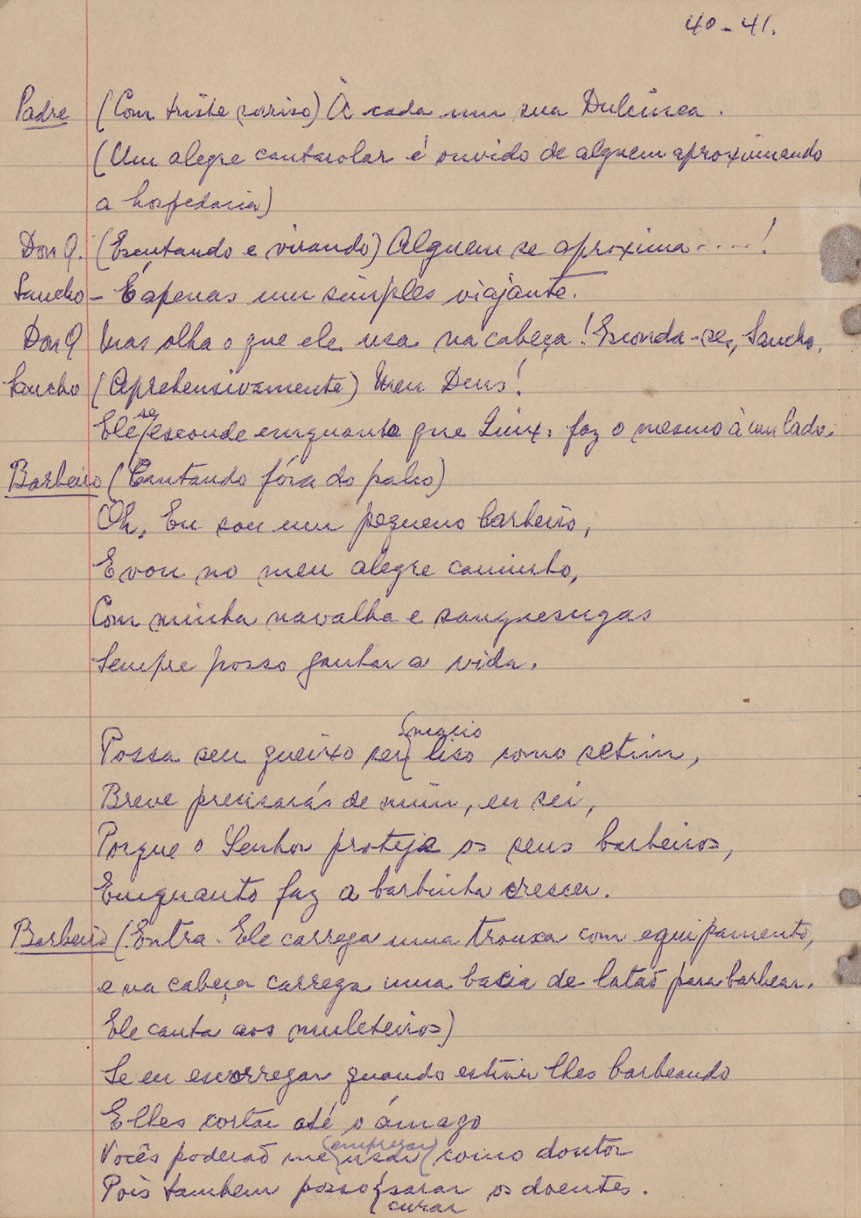 40-41.
Padre (Com triste sorriso) À cada um sua Dulcinea.
(Um alegre cantarolar é ouvido de alguem aproximando
a hospedaria)
Don Q. (Escutando e virando) Alguem se aproxima.....!
Sancho - É apenas um simples viajante.
Don Q Mas olha o que ele usa na cabeça! Esconda-se, Sancho.
Sancho (Aprehensivamente) Meu Deus!
Ele se esconde emquanto que Quix. faz o mesmo à um lado.
Barbeiro (Cantando fóra do palco)
Oh, Eu sou um pequeno barbeiro,
E vou no meu alegre caminho,
Com minha navalha e sanguesugas
Sempre posso ganhar a vida.
macio
Possa seu queixo ser liso como setim,
Breve precisarás de mim, eu sei,
Porque o Senhor proteje os seus barbeiros,
Emquanto faz a barbinha crescer.
Barbeiro (Entra. Ele carrega uma trouxa com equipamento,
e na cabeça carrega uma bacia de latão para barbear.
Ele canta aos muleteiros)
Se eu escorregar quando estiver lhes barbeando
E lhes cortar até o ámago
Vocês poderão me (empregar) usar como doutor
Pois tambem posso sarar os doentes.
curar